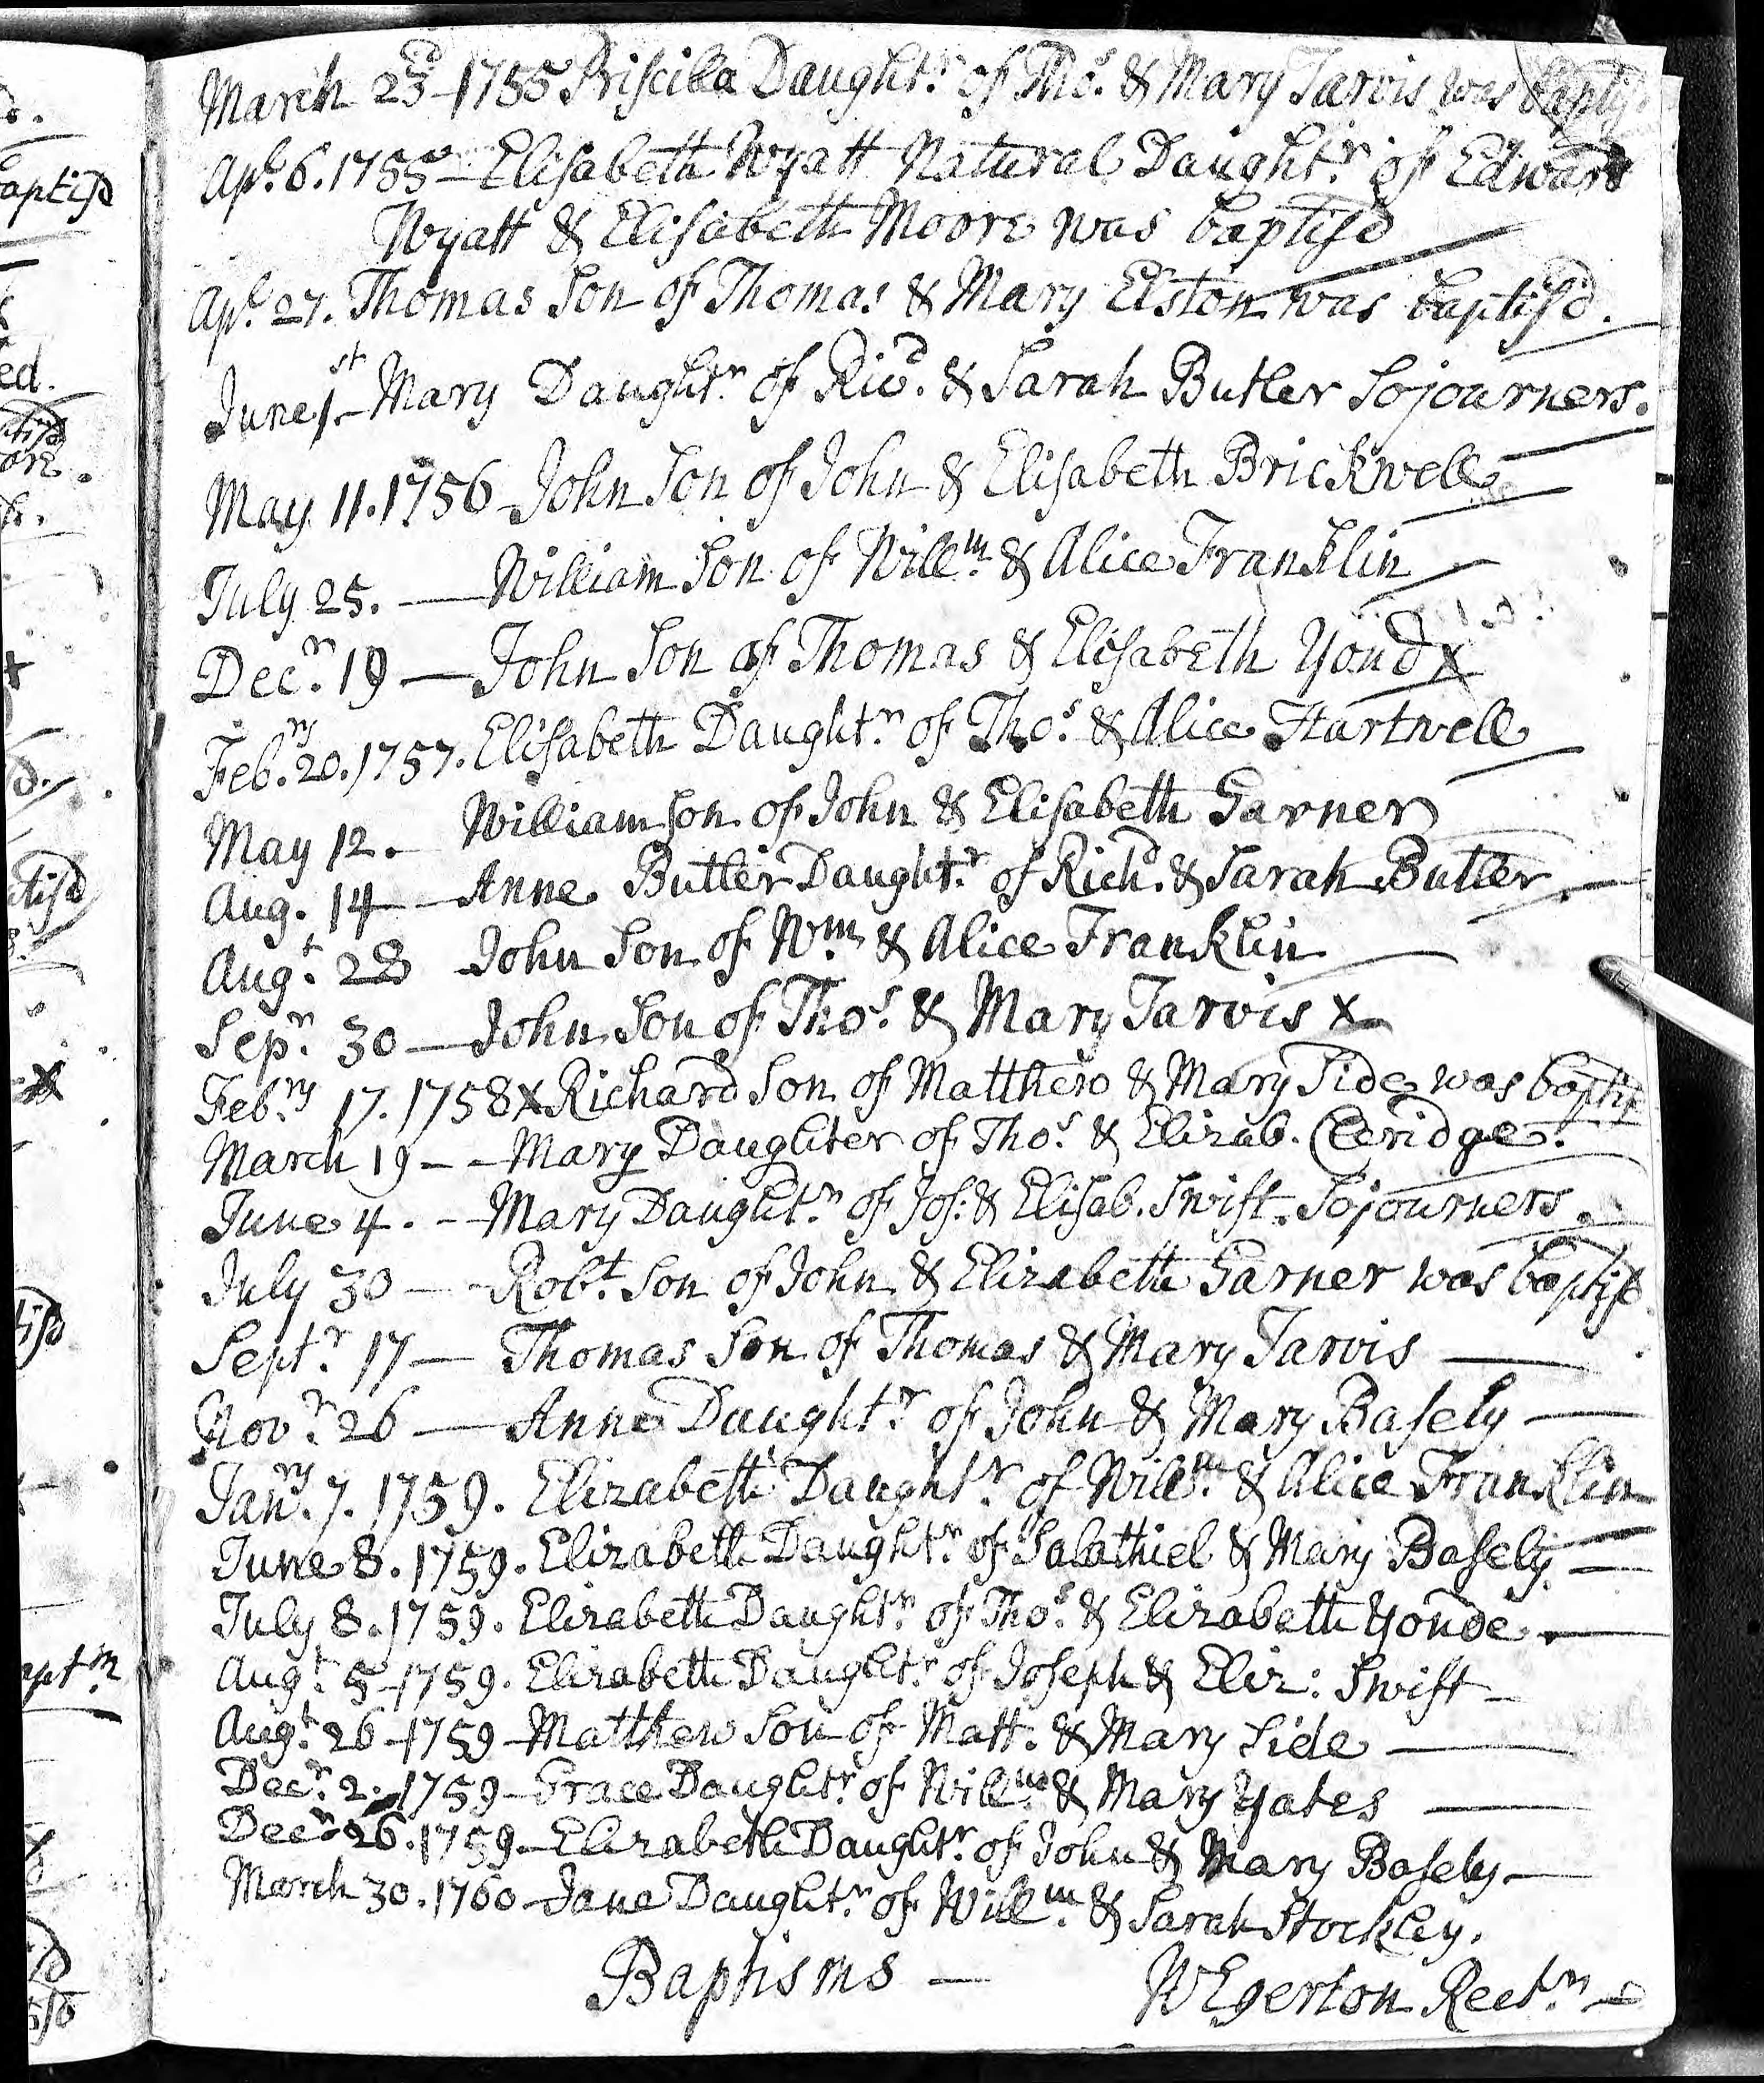 March 23d 1755 Priscilla Daughtr. of Thos. & Mary Jarvis was baptis'd
Apl. 6. 1755 Elisabeth Wyatt Natural Daughtr. of Edward
Wyatt & Elisabeth Moore was baptis'd
Apl. 27. Thomas Son of Thomas & Mary Elston was baptis'd.
June 1st Mary Daughtr. of Ricd. & Sarah Butler Sojourners.
May 11. 1756 John Son of John & Elisabeth Brickwell
July 25. — William Son of Willm. & Alice Franklin
Decr. 19 — John Son of Thomas & Elisabeth Yond x
Febry. 20. 1757. Elisabeth Daughtr. of Thos. & Alice Hartwell
May 12. William Son of John & Elisabeth Garner
Aug. 14 — Anne Butler Daughtr. of Richd. & Sarah Butler
Augt. 28 John Son of Wm. & Alice Franklin
Sepr. 30 — John Son of Thos. & Mary Jarvis x
Febry. 17. 1758 x Richard Son of Matthew & Mary Side was baptis'd
March 19 - - Mary Daughter of Thos. & Elizab. Ceridge.
June 4. - - Mary Daughtr. of Jos: & Elisab. Swift. Sojourners.
July 30 — - Robt. Son of John & Elizabeth Garner was baptis'd
Septr. 17 — Thomas Son of Thomas & Mary Jarvis —
Novr. 26 — Anne Daughtr. of John & Mary Basely —
Janry. 7. 1759. Elizabeth Daughtr. of Willm. & Alice Franklin
June 8. 1759. Elizabeth Daughtr. of Salathiel & Mary Basely. —
July 8. 1759. Elizabeth Daughtr. of Thos. & Elizabeth Yonde. —
Augt. 5 - 1759. Elizabeth Daughtr. of Joseph & Eliz: Swift —
Augt. 26 - 1759 - Matthew Son of Matt. & Mary Side —
Decr. 2. 1759 - Grace Daughtr. of Willm. & Mary Yates —
Decr. 26. 1759 - Elizabeth Daughtr. of John & Mary Basely —
March 30. 1760 - Jane Daughtr. of Willm. & Sarah Stockley.
Baptisms — WEgerton Rectr.